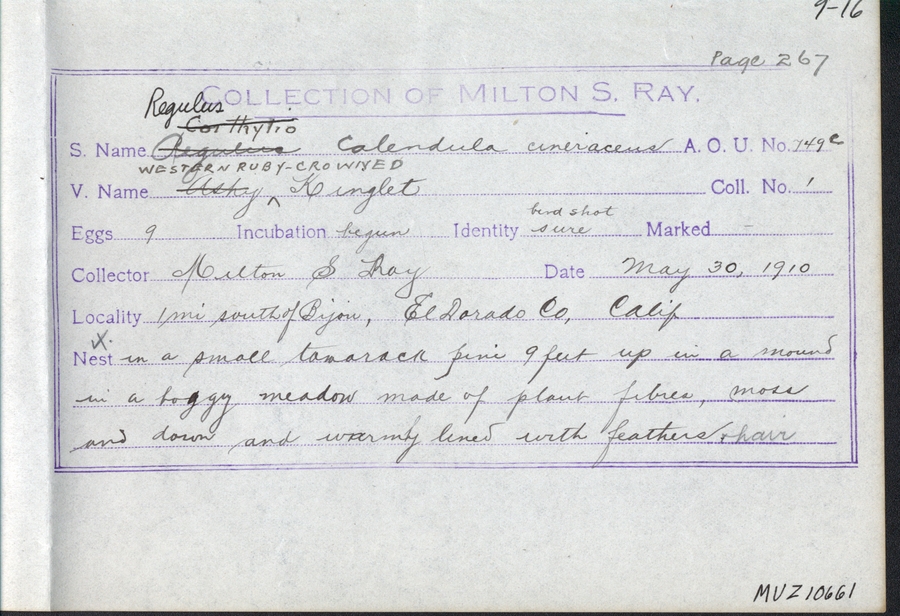 9-16
Page 267
COLLECTION OF MILTON S. RAY.
Regulus
Corthylio
S. Name Regulus Calendula cineraceus A. O. U. No. 749c
WESTERN RUBY-CROWNED
V. Name Ashy ^ Kinglet Coll. No. 1
bird shot
Eggs 9 Incubation begun Identity sure Marked -
Collector Milton S Ray Date May 30, 1910
Locality 1 mi south of Bijou, El Dorado Co, Calif
X.
Nest in a small tamarack pine 9 feet up in a mound
in a boggy meadow made of plant fibres, moss
and down and warmly lined with feathers & hair
MVZ10661